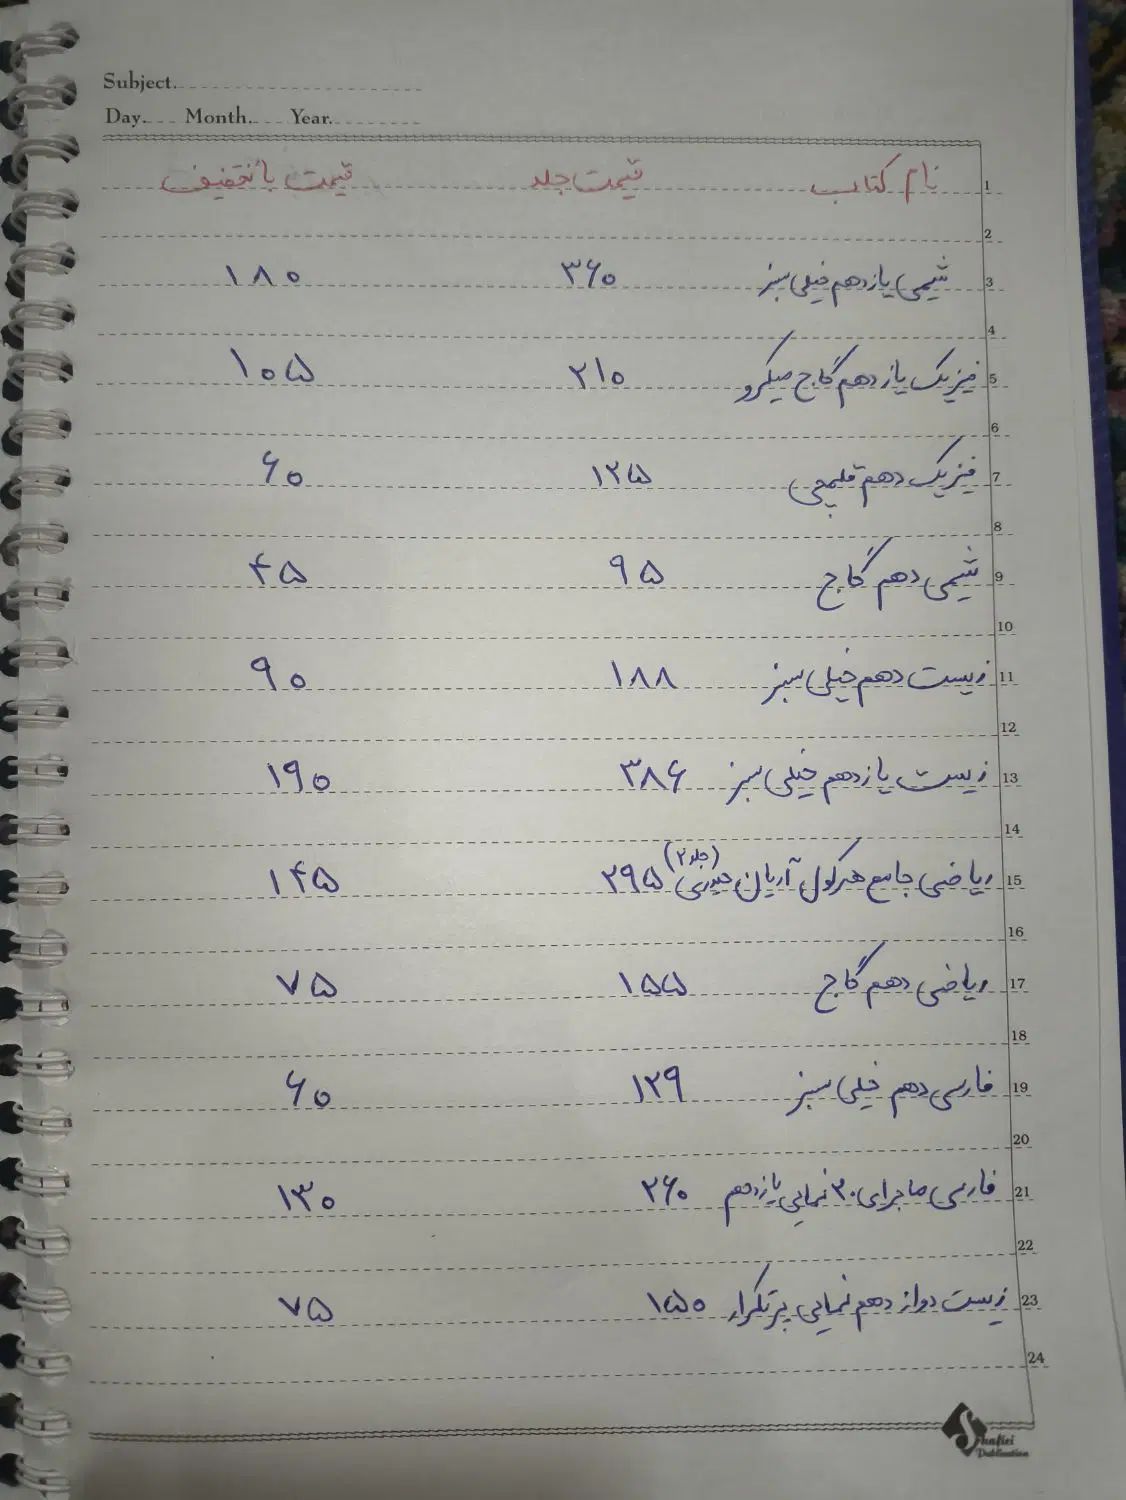 Subject.
Day. Month. Year.
نام کتاب قیمت جلد قیمت با تخفیف 1
2
شیمی یازدهم خیلی سبز ۳۶۰ ۱۸۰ 3
4
فیزیک یازدهم گاج میکرو ۲۱۰ ۱۰۵ 5
6
فیزیک دهم قلمچی ۱۲۵ ۶۰ 7
8
شیمی دهم گاج ۹۵ ۴۵ 9
10
زیست دهم خیلی سبز ۱۸۸ ۹۰ 11
12
زیست یازدهم خیلی سبز ۳۸۶ ۱۹۰ 13
14
ریاضی جامع هرکول آریان حیدری (جلد ۲) ۲۹۵ ۱۴۵ 15
16
ریاضی دهم گاج ۱۵۵ ۷۵ 17
18
فارسی دهم خیلی سبز ۱۲۹ ۶۰ 19
20
فارسی ماجرای ۲۰ نمایی یازدهم ۲۶۰ ۱۳۰ 21
22
زیست دوازدهم نمایی پرتکرار ۱۵۰ ۷۵ 23
24
Shafiei
Publication